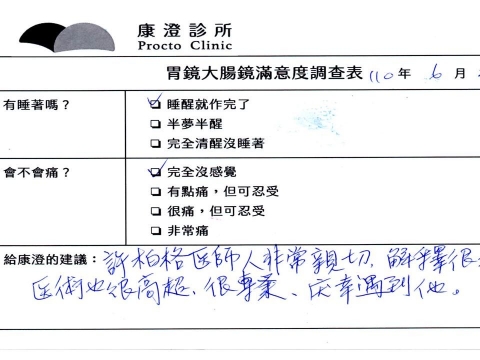 康澄診所
Procto Clinic
胃鏡大腸鏡滿意度調查表 110年 6月
有睡著嗎？
☑ 睡醒就作完了
☐ 半夢半醒
☐ 完全清醒沒睡著
會不會痛？
☑ 完全沒感覺
☐ 有點痛，但可忍受
☐ 很痛，但可忍受
☐ 非常痛
給康澄的建議：許柏格医師人非常親切，解釋很
医術也很高超、很專業、庆幸遇到他。